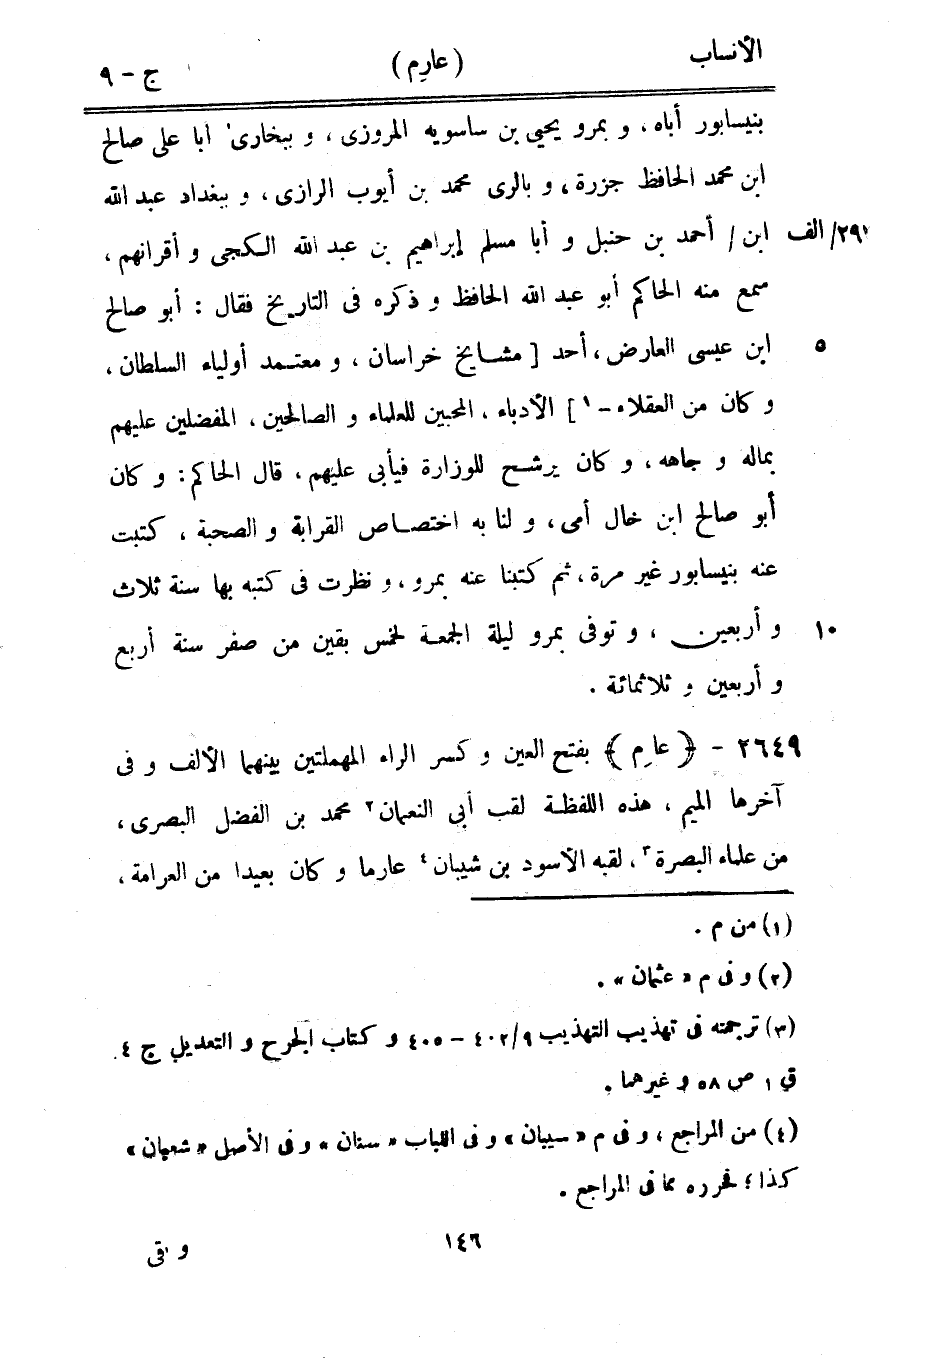 الأنساب (عارم) ج - ٩
بنيسابور أباه، و بمرو يحيى بن ساسويه المروزى، و ببخارى أبا على صالح
ابن محمد الحافظ جزرة، و بالرى محمد بن أيوب الرازى، و ببغداد عبد الله
٢٩١/الف ابن / أحمد بن حنبل و أبا مسلم إبراهيم بن عبد الله الكجى و أقرانهم،
سمع منه الحاكم أبو عبد الله الحافظ و ذكره فى التاريخ فقال: أبو صالح
٥ ابن عيسى العارض، أحد [ مشايخ خراسان، و معتمد أولياء السلطان،
و كان من العقلاء-١] الأدباء، المحبين للعلماء و الصالحين، المفضلين عليهم
بماله و جاهه، و كان يرشح للوزارة فيأبى عليهم، قال الحاكم: و كان
أبو صالح ابن خال أمى، و لنا به اختصاص القرابة و الصحبة، كتبت
عنه بنيسابور غير مرة، ثم كتبنا عنه بمرو، و نظرت فى كتبه بها سنة ثلاث
١٠ و أربعين، و توفى بمرو ليلة الجمعة لخمس بقين من صفر سنة أربع
و أربعين و ثلاثمائة.
٢٦٤٩ - ﴿عارم﴾ بفتح العين و كسر الراء المهملتين بينهما الألف و فى
آخرها الميم، هذه اللفظة لقب أبي النعمان٢ محمد بن الفضل البصرى،
من علماء البصرة٣، لقبه الأسود بن شيبان٤ عارما و كان بعيدا من العرامة،
(١) من م.
(٢) و فى م «عثمان».
(٣) ترجمته فى تهذيب التهذيب ٩/٤٠٢ - ٤٠٥ و كتاب الجرح و التعديل ج ٤
ق ١ ص ٥٨ و غيرهما.
(٤) من المراجع، و فى م «سيبان» و فى اللباب «سنان» و فى الأصل «شعبان»
كذا؛ فحرره مما فى المراجع.
١٤٦ و قى